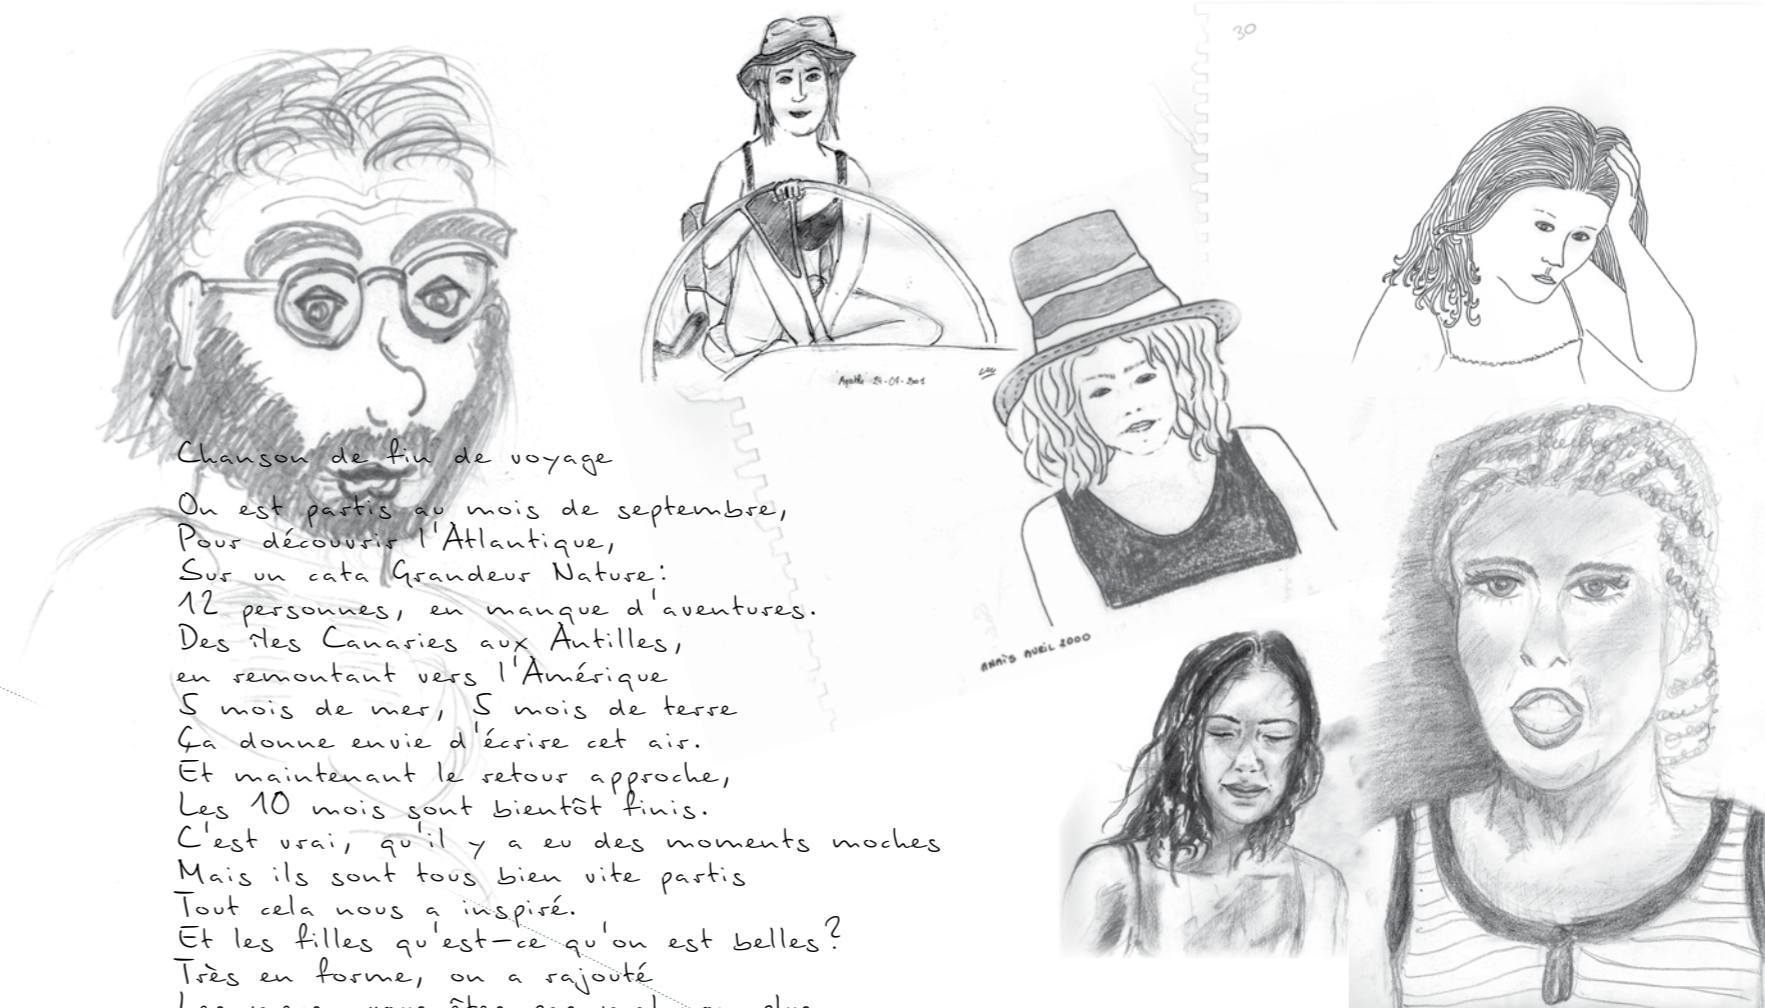 30
Agathe 21-01-2001
ANAÏS AVRIL 2000
Chanson de fin de voyage
On est partis au mois de septembre,
Pour découvrir l'Atlantique,
Sur un cata Grandeur Nature:
12 personnes, en manque d'aventures.
Des îles Canaries aux Antilles,
en remontant vers l'Amérique
5 mois de mer, 5 mois de terre
Ça donne envie d'écrire cet air.
Et maintenant le retour approche,
Les 10 mois sont bientôt finis.
C'est vrai, qu'il y a eu des moments moches
Mais ils sont tous bien vite partis
Tout cela nous a inspiré.
Et les filles qu'est-ce qu'on est belles?
Très en forme, on a rajouté